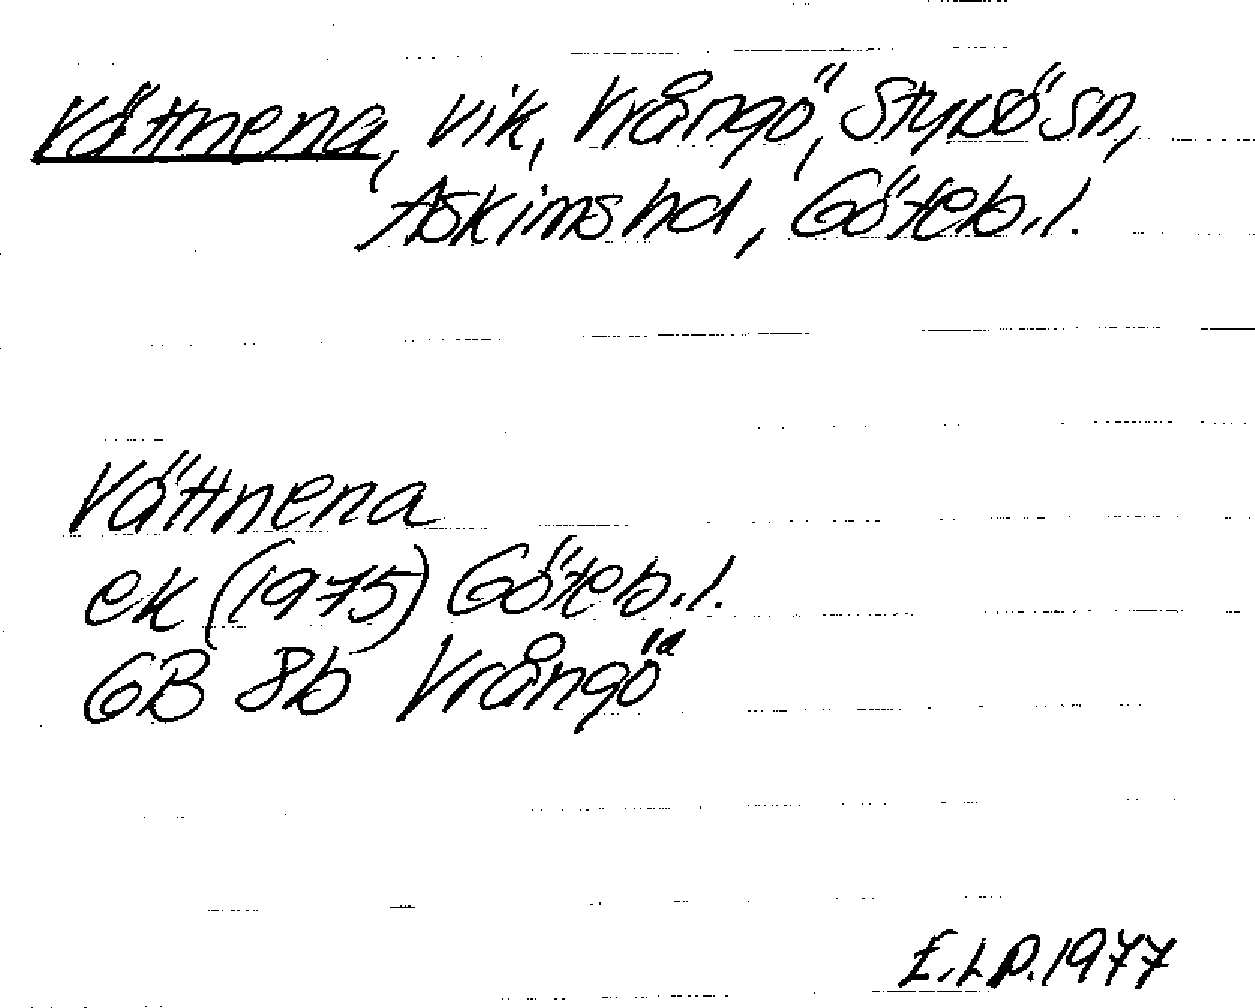 Vättnena, vik, Vrångö, Styrsö sn,
Askims hd, Göteb.l.
Vättnena
ek (1975) Göteb.l.
GB 8b Vrångö
E.L.P. 1977